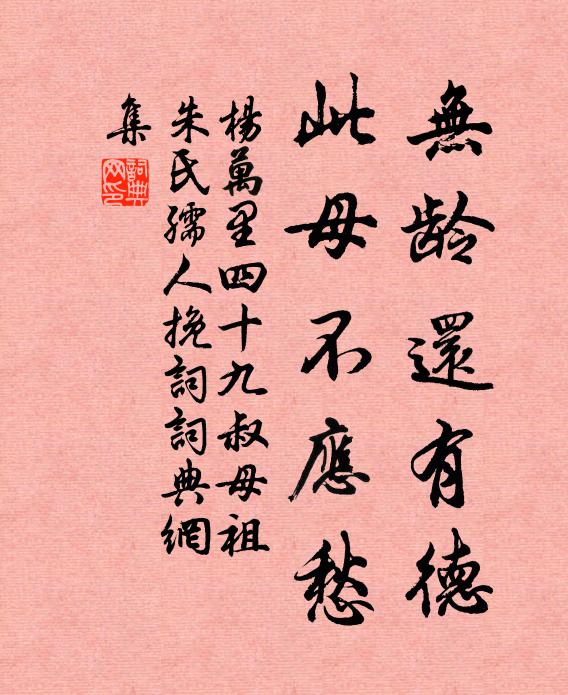 無龄還有德
此母不應愁
楊萬里四十九叔母祖
朱氏孺人挽詞詞典網
集
詞典网印